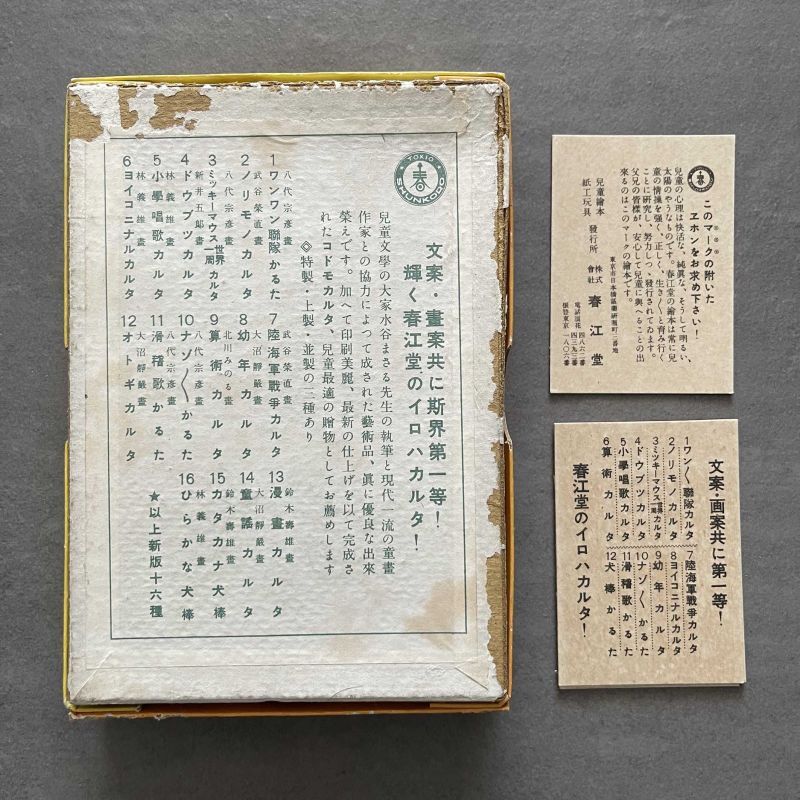 TOKIO
春
SHUNKODO
文案・畫案共に斯界第一等!
輝く春江堂のイロハカルタ!
兒童文學の大家水谷まさる先生の執筆と現代一流の童畫
作家との協力によつて成された藝術品、眞に優良な出來
榮えです。加へて印刷美麗、最新の仕上げを以て完成さ
れたコドモカルタ、兒童最適の贈物としてお薦めします
◎特製・上製・並製の三種あり
八代宗彦畫
1 ワンワン聯隊かるた
武谷榮直畫
2 ノリモノカルタ
八代宗彦畫
3 ミツキーマウス世界一周カルタ
新井五郎畫
4 ドウブツカルタ
林義雄畫
5 小學唱歌カルタ
林義雄畫
6 ヨイコニナルカルタ
武谷榮直畫
7 陸海軍戰爭カルタ
大沼靜巖畫
8 幼年カルタ
北川みのる畫
9 算術カルタ
八代宗彦畫
10 ナゾ〱かるた
八代宗彦畫
11 滑稽歌かるた
大沼靜巖畫
12 オトギカルタ
鈴木壽雄畫
13 漫畫カルタ
大沼靜巖畫
14 童謠カルタ
鈴木壽雄畫
15 カタカナ犬棒
林義雄畫
16 ひらかな犬棒
★以上新版十六種
春
このマークの附いた
ヱホンをお求め下さい!
兒童の心理は快活な、純眞な、そうして明るい、
太陽のやうなものです。春江堂の繪本は常に兒
童の情操を強く、正しく、生き〱と育み行く
ことに研究し、努力しつゝ發行されてゐます。
父兄の皆樣が、安心して兒童に與へることの出
來るのはこのマークの繪本です。
兒童繪本
紙工玩具
發行所
株式會社
春江堂
東京市日本橋區藥研堀町二番地
電話浪花
四八六二番
四三九三番
振替東京一八〇六番
文案・画案共に第一等!
1 ワン〱聯隊カルタ
2 ノリモノカルタ
3 ミツキーマウス世界一周カルタ
4 ドウブツカルタ
5 小學唱歌カルタ
6 算術カルタ
7 陸海軍戰爭カルタ
8 ヨイコニナルカルタ
9 幼年カルタ
10 ナゾ〱かるた
11 滑稽歌かるた
12 犬棒かるた
春江堂のイロハカルタ!